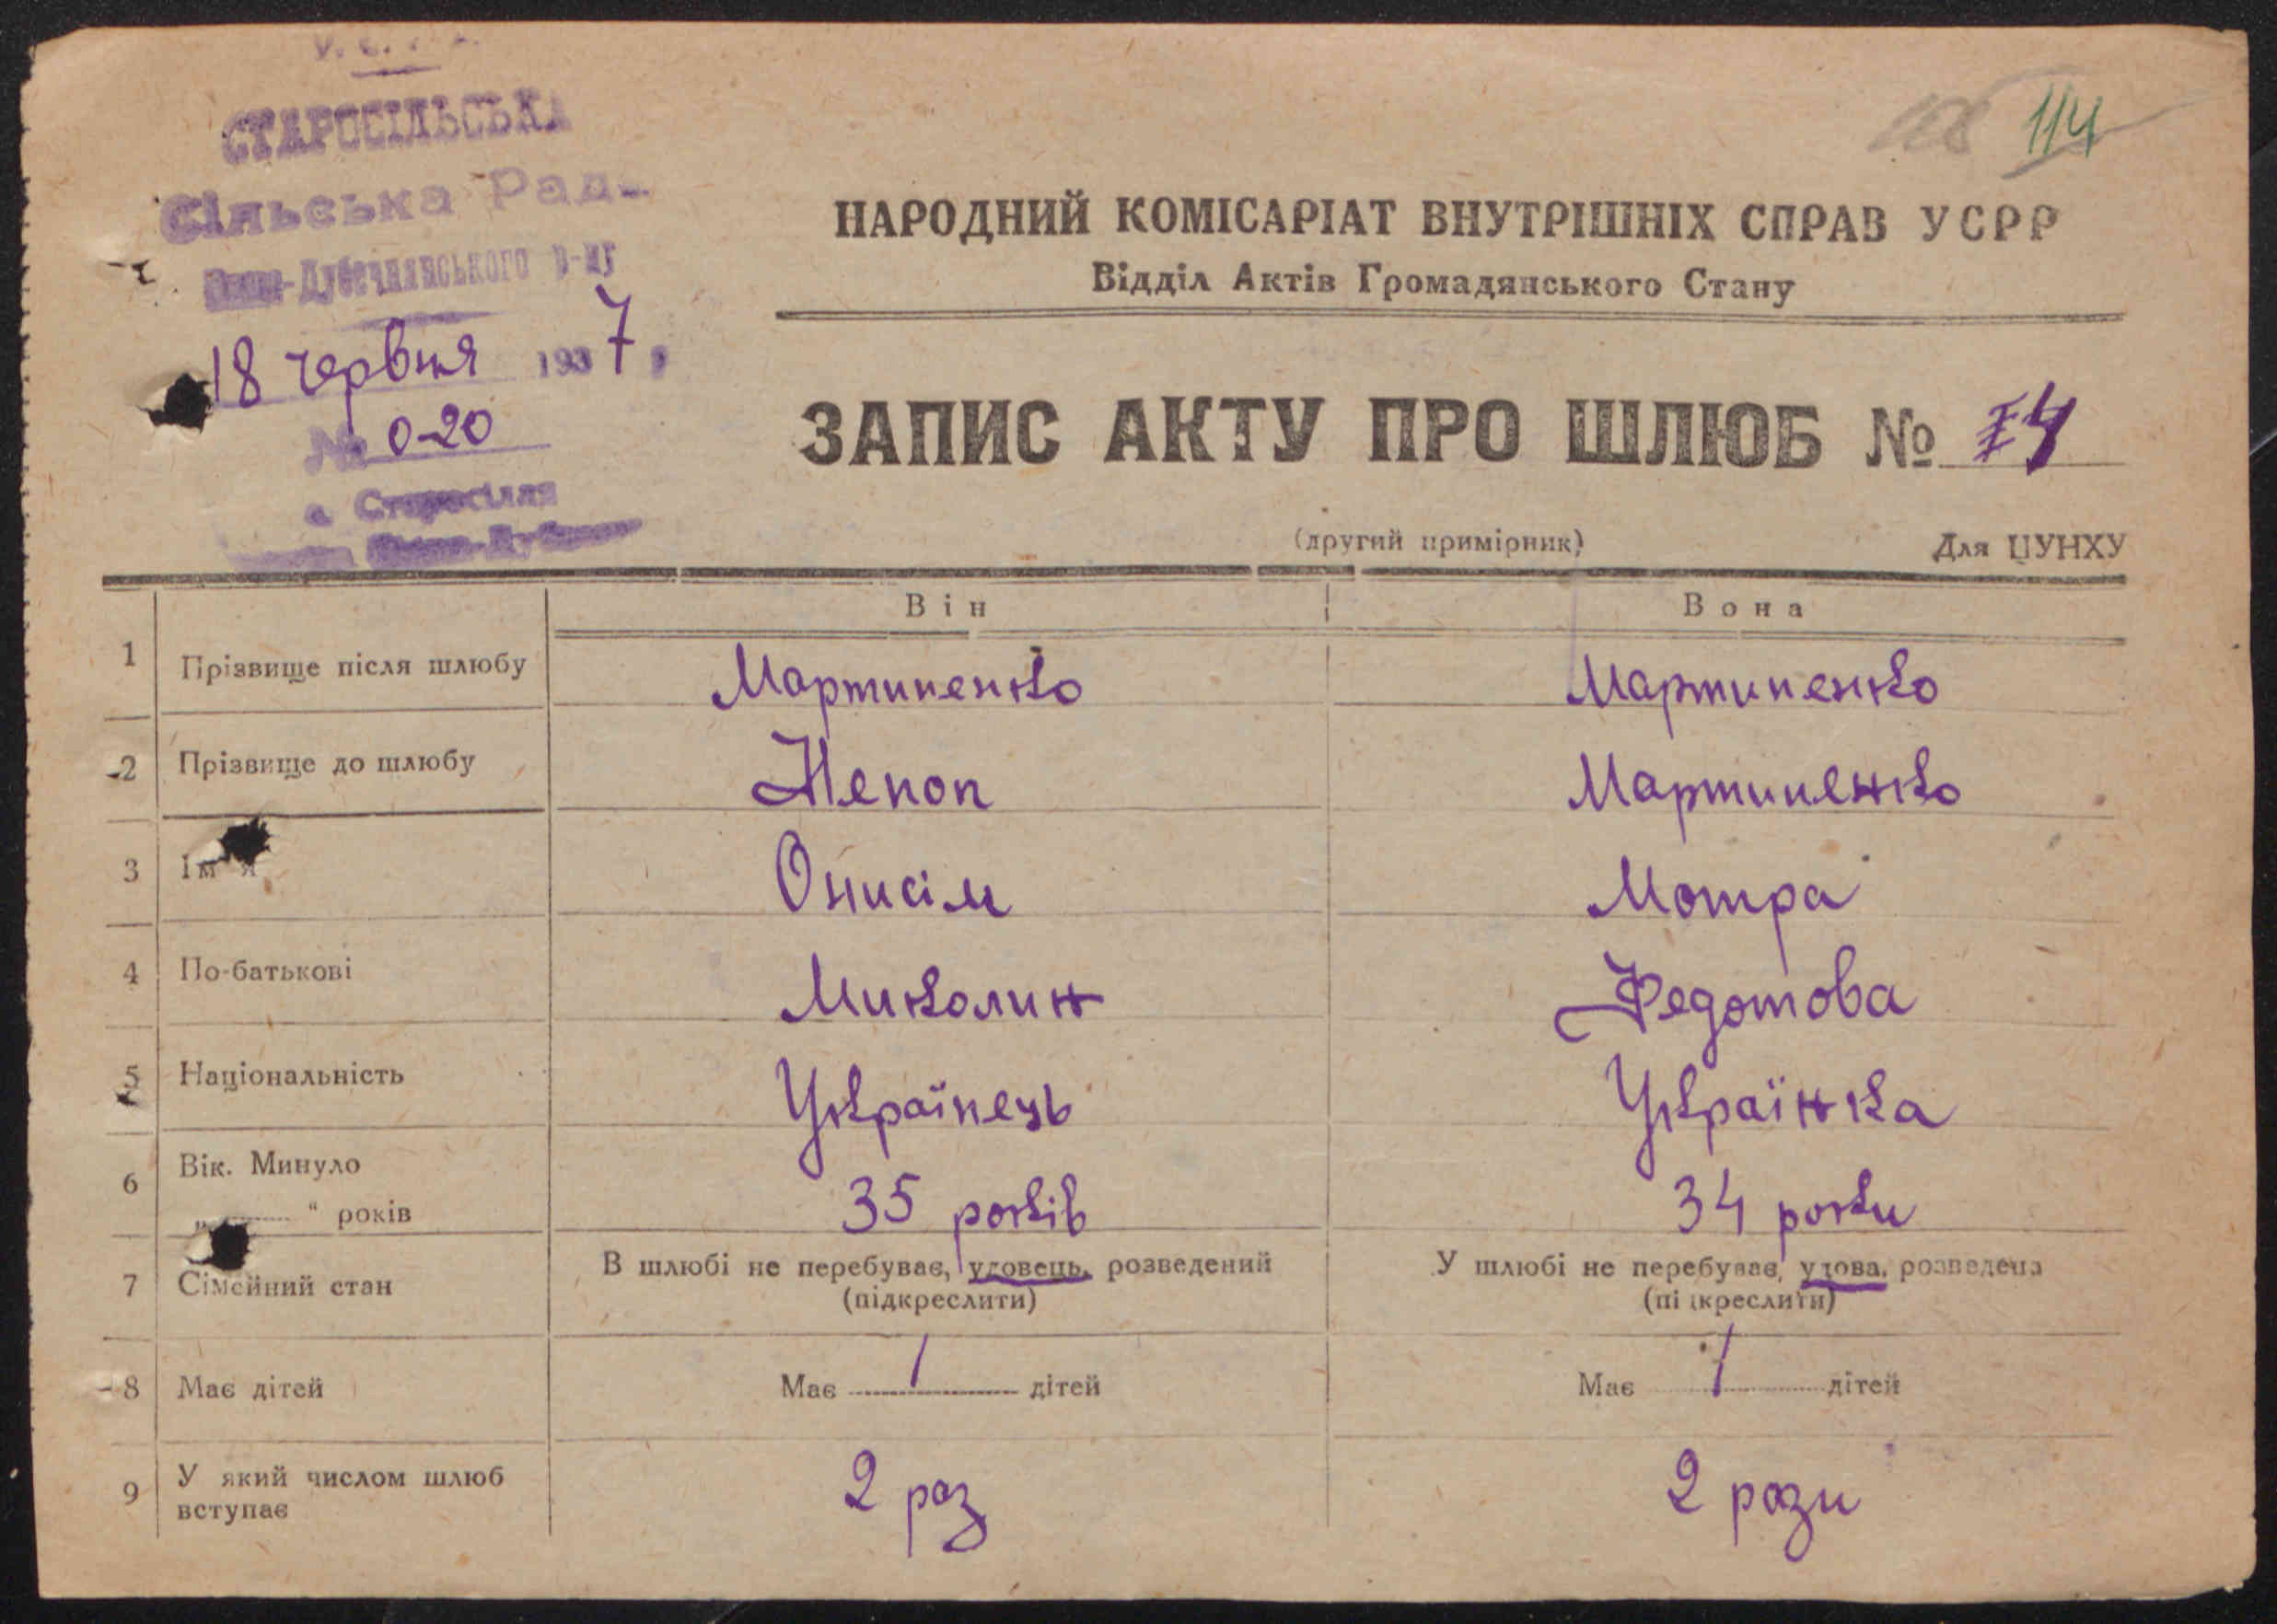 СТАРОСІЛЬСЬКА
Сільська Рад
-Дубечнянського р-ну
18 червня 1937
№ 0-20
с. Старосілля
114
НАРОДНИЙ КОМІСАРІАТ ВНУТРІШНІХ СПРАВ УСРР
Відділ Актів Громадянського Стану
ЗАПИС АКТУ ПРО ШЛЮБ №
(другий примірник)
Для ЦУНХУ
Він Вона
1 Прізвище після шлюбу Мартиненко Мартиненко
2 Прізвище до шлюбу Непоп Мартиненко
3 Ім я Онисім Мотра
4 По-батькові Миколин Федотова
5 Національність Українець Українка
6 Вік. Минуло
„ “ років 35 років 34 роки
7 Сімейний стан В шлюбі не перебуває, удовець, розведений У шлюбі не перебуває, удова, розведена
(підкреслити) (підкреслити)
8 Має дітей Має 1 дітей Має 1 дітей
9 У який числом шлюб
вступає 2 раз 2 рази